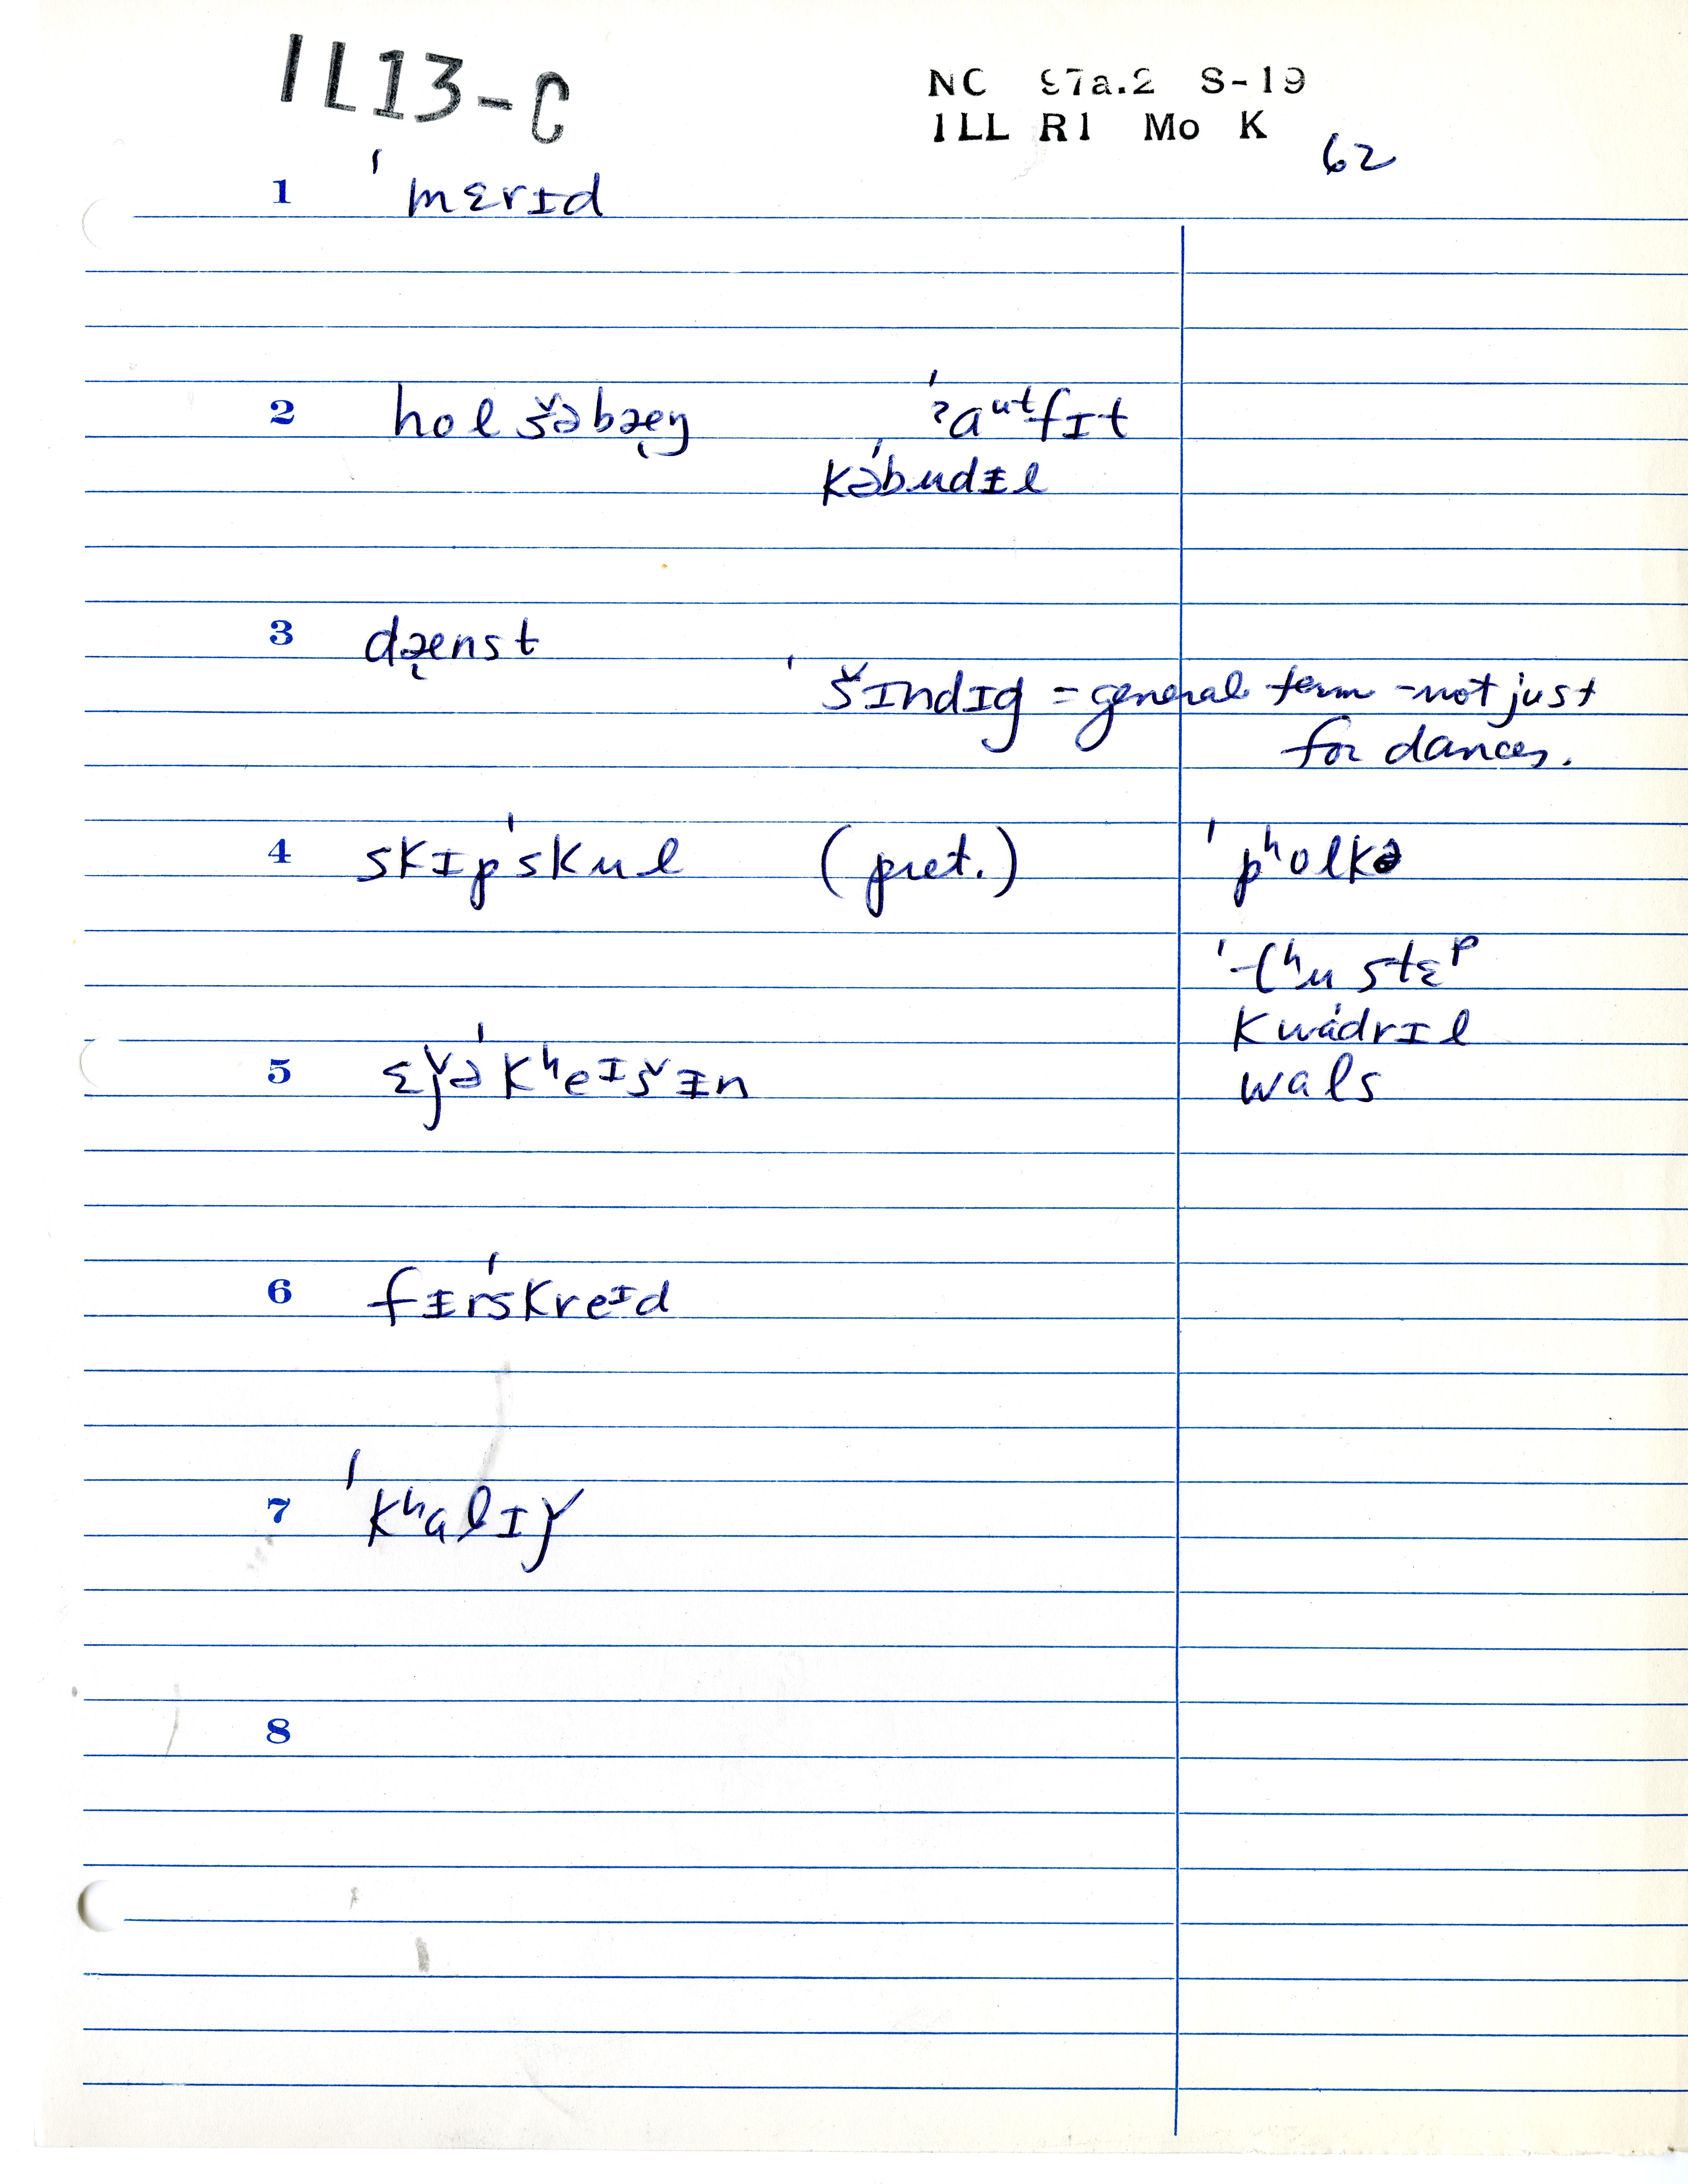 IL13-C
NC 97a.2 S-19
ILL R1 Mo K
62
1 ˈmɛrɪd
2 hol šəbæ̨ŋ ˈʔaᵘᵗfɪt
kəˈbudɪl
3 dæ̨nst
ˈšɪndɪg = general term - not just
for dances.
4 skɪpˈskul (pret.) ˈpʰolkə
ˈtʰu stɛᵖ
kwádrɪl
5 ɛǰəˈkʰeɪšɪn wals
6 fɪrˈskreɪd
7 ˈkʰalɪǰ
8